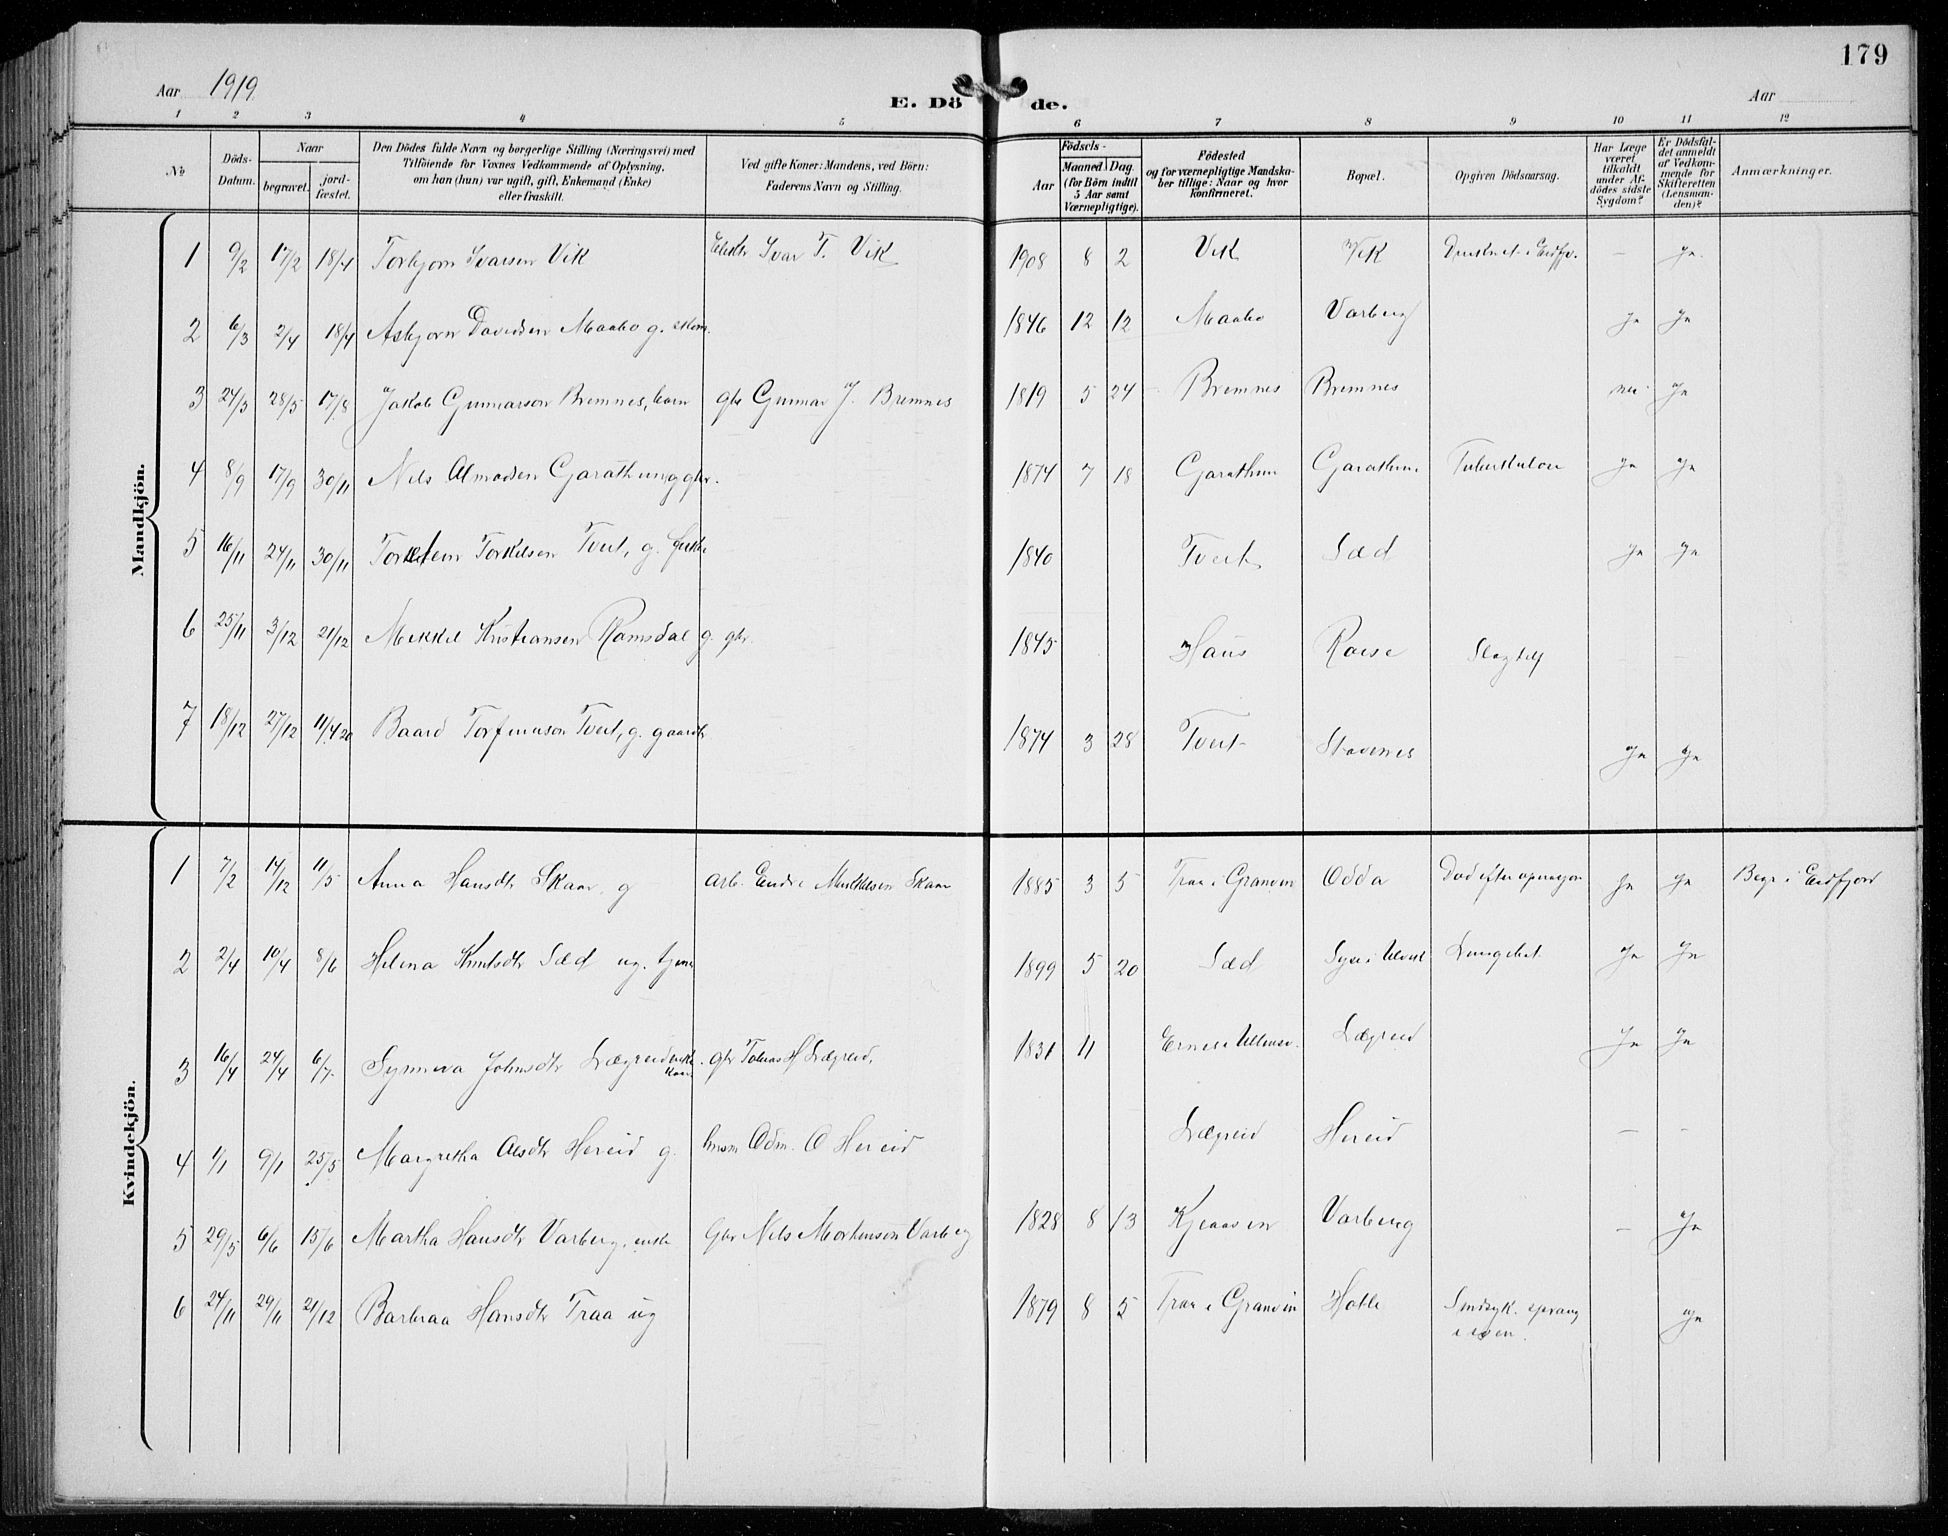 179
Aar 1919
E. Dö de.
Aar
1 2 3 4 5 6 7 8 9 10 11 12
No
Döds-Datum.
Naar
begravet.
jordfæstet.
Den Dödes fulde Navn og borgerlige Stilling (Næringsvei) med
Tilföiende for Voxnes Vedkommende af Oplysning,
om han (hun) var ugift, gift, Enkemand (Enke)
eller fraskilt.
Ved gifte Koner: Mandens, ved Börn:
Faderens Navn og Stilling.
Födsels-
Aar
Maaned Dag
(for Börn indtil
5 Aar samt
Værnepligtige).
Födested
og for værnepligtige Mandska-
ber tillige: Naar og hvor
konfirmeret.
Bopæl.
Opgiven Dödsaarsag.
Har Læge
været
tilkaldt
under Af-
dödes sidste
Sygdom?
Er Dödsfal-
det anmeldt
af Vedkom-
mende for
Skifteretten
(Lensman-
den)?
Anmærkninger.
Mandkjön.
1 9/2 17/2 18/4 Torbjorn Ivarsen Vik Ivar T. Vik 1908 8 2 Vik Vik Druknet i Eidfj. — Ja
2 6/3 2/4 18/4 Asbjorn Davidsen Maabo g. 1846 12 12 Maabo Varberg Ja Ja
3 24/5 28/5 17/8 Jakob Gunnarson Bremnes, barn gbr Gunnar J. Bremnes 1819 5 24 Bremnes Bremnes nei Ja
4 8/9 17/9 30/11 Nils Almodsen Garathun, g gbr. 1874 7 18 Garathun Garathun Tuberkulose Ja Ja
5 16/11 24/11 30/11 Torkilsen Tveit, g. 1840 Tveit Sæd Ja Ja
6 25/11 3/12 21/12 Mikkel Kristiansen Ramsdal g. gbr. 1845 Haus Roise Slagtilf — —
7 18/12 27/12 11/4 20 Baard Torfinnson Tveit, g. gaardbr 1874 3 28 Tveit Stavenes Ja Ja
Kvindekjön.
1 7/2 14/12 11/5 Anna Hansdtr Skaar, g arb. Endre Mikkelsen Skaar 1885 3 5 Traa i Granvin Odda Dod efter operasjon Ja Ja Begr i Eidfjord
2 2/4 10/4 8/6 Helena Knutsdtr Sæd ug. tjener 1899 5 20 Sæd Syse i Ulvik Lungebet. Ja Ja
3 16/4 24/4 6/7 Synneva Johnsdtr Lægreid gbr Tobias H Lægreid, 1831 11 Lægreid Ja Ja
4 1/1 9/1 25/5 Margretha Olsdtr Hereid g. husm Odm. O Hereid Lægreid Hereid — —
5 29/5 6/6 15/6 Martha Hansdtr Varberg, enke Gbr Nils Mortenson Varberg 1828 8 13 Kjeaasen Varberg — Ja
6 24/11 29/11 21/12 Barbraa Hansdtr Traa ug 1879 8 5 Traa i Granvin Hotle Sindsyk. sprang
Ja